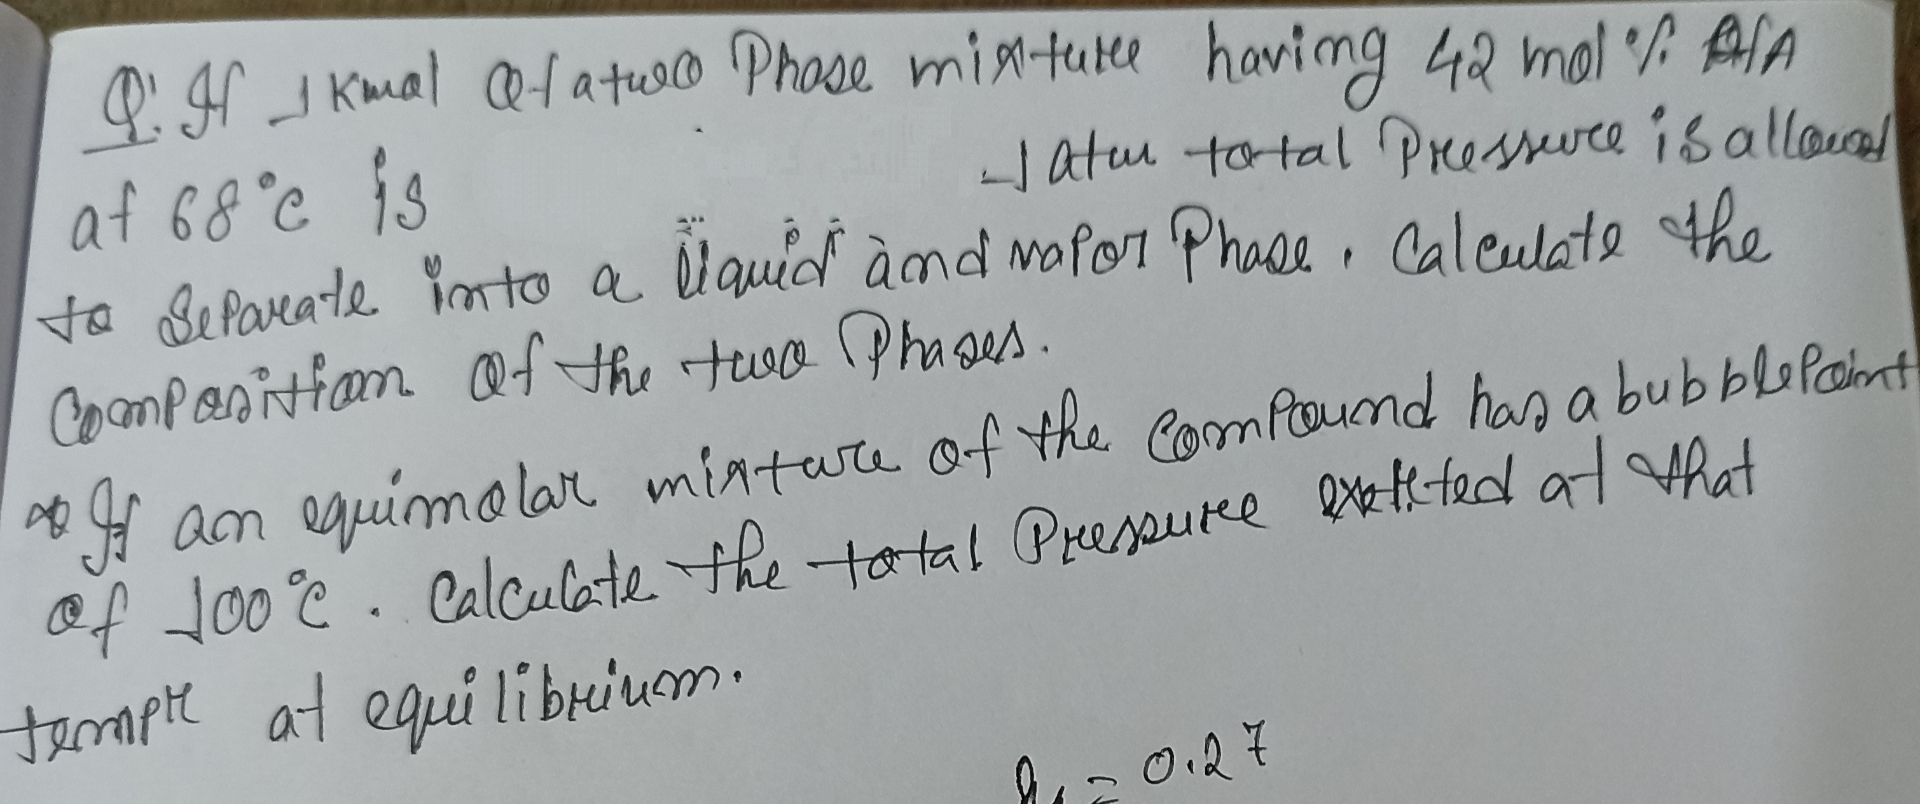 Q. If 1 Kmol of a two Phase mixture having 42 mol % A
at 68°c is 1 atm total Pressure is allowed
to Separate into a liquid and vapor Phase. Calculate the
Composition of the two Phases.
If an equimolar mixture of the Compound has a bubble Point
of 100°C. Calculate the total Pressure exerted at that
tempr at equilibrium.
= 0.27